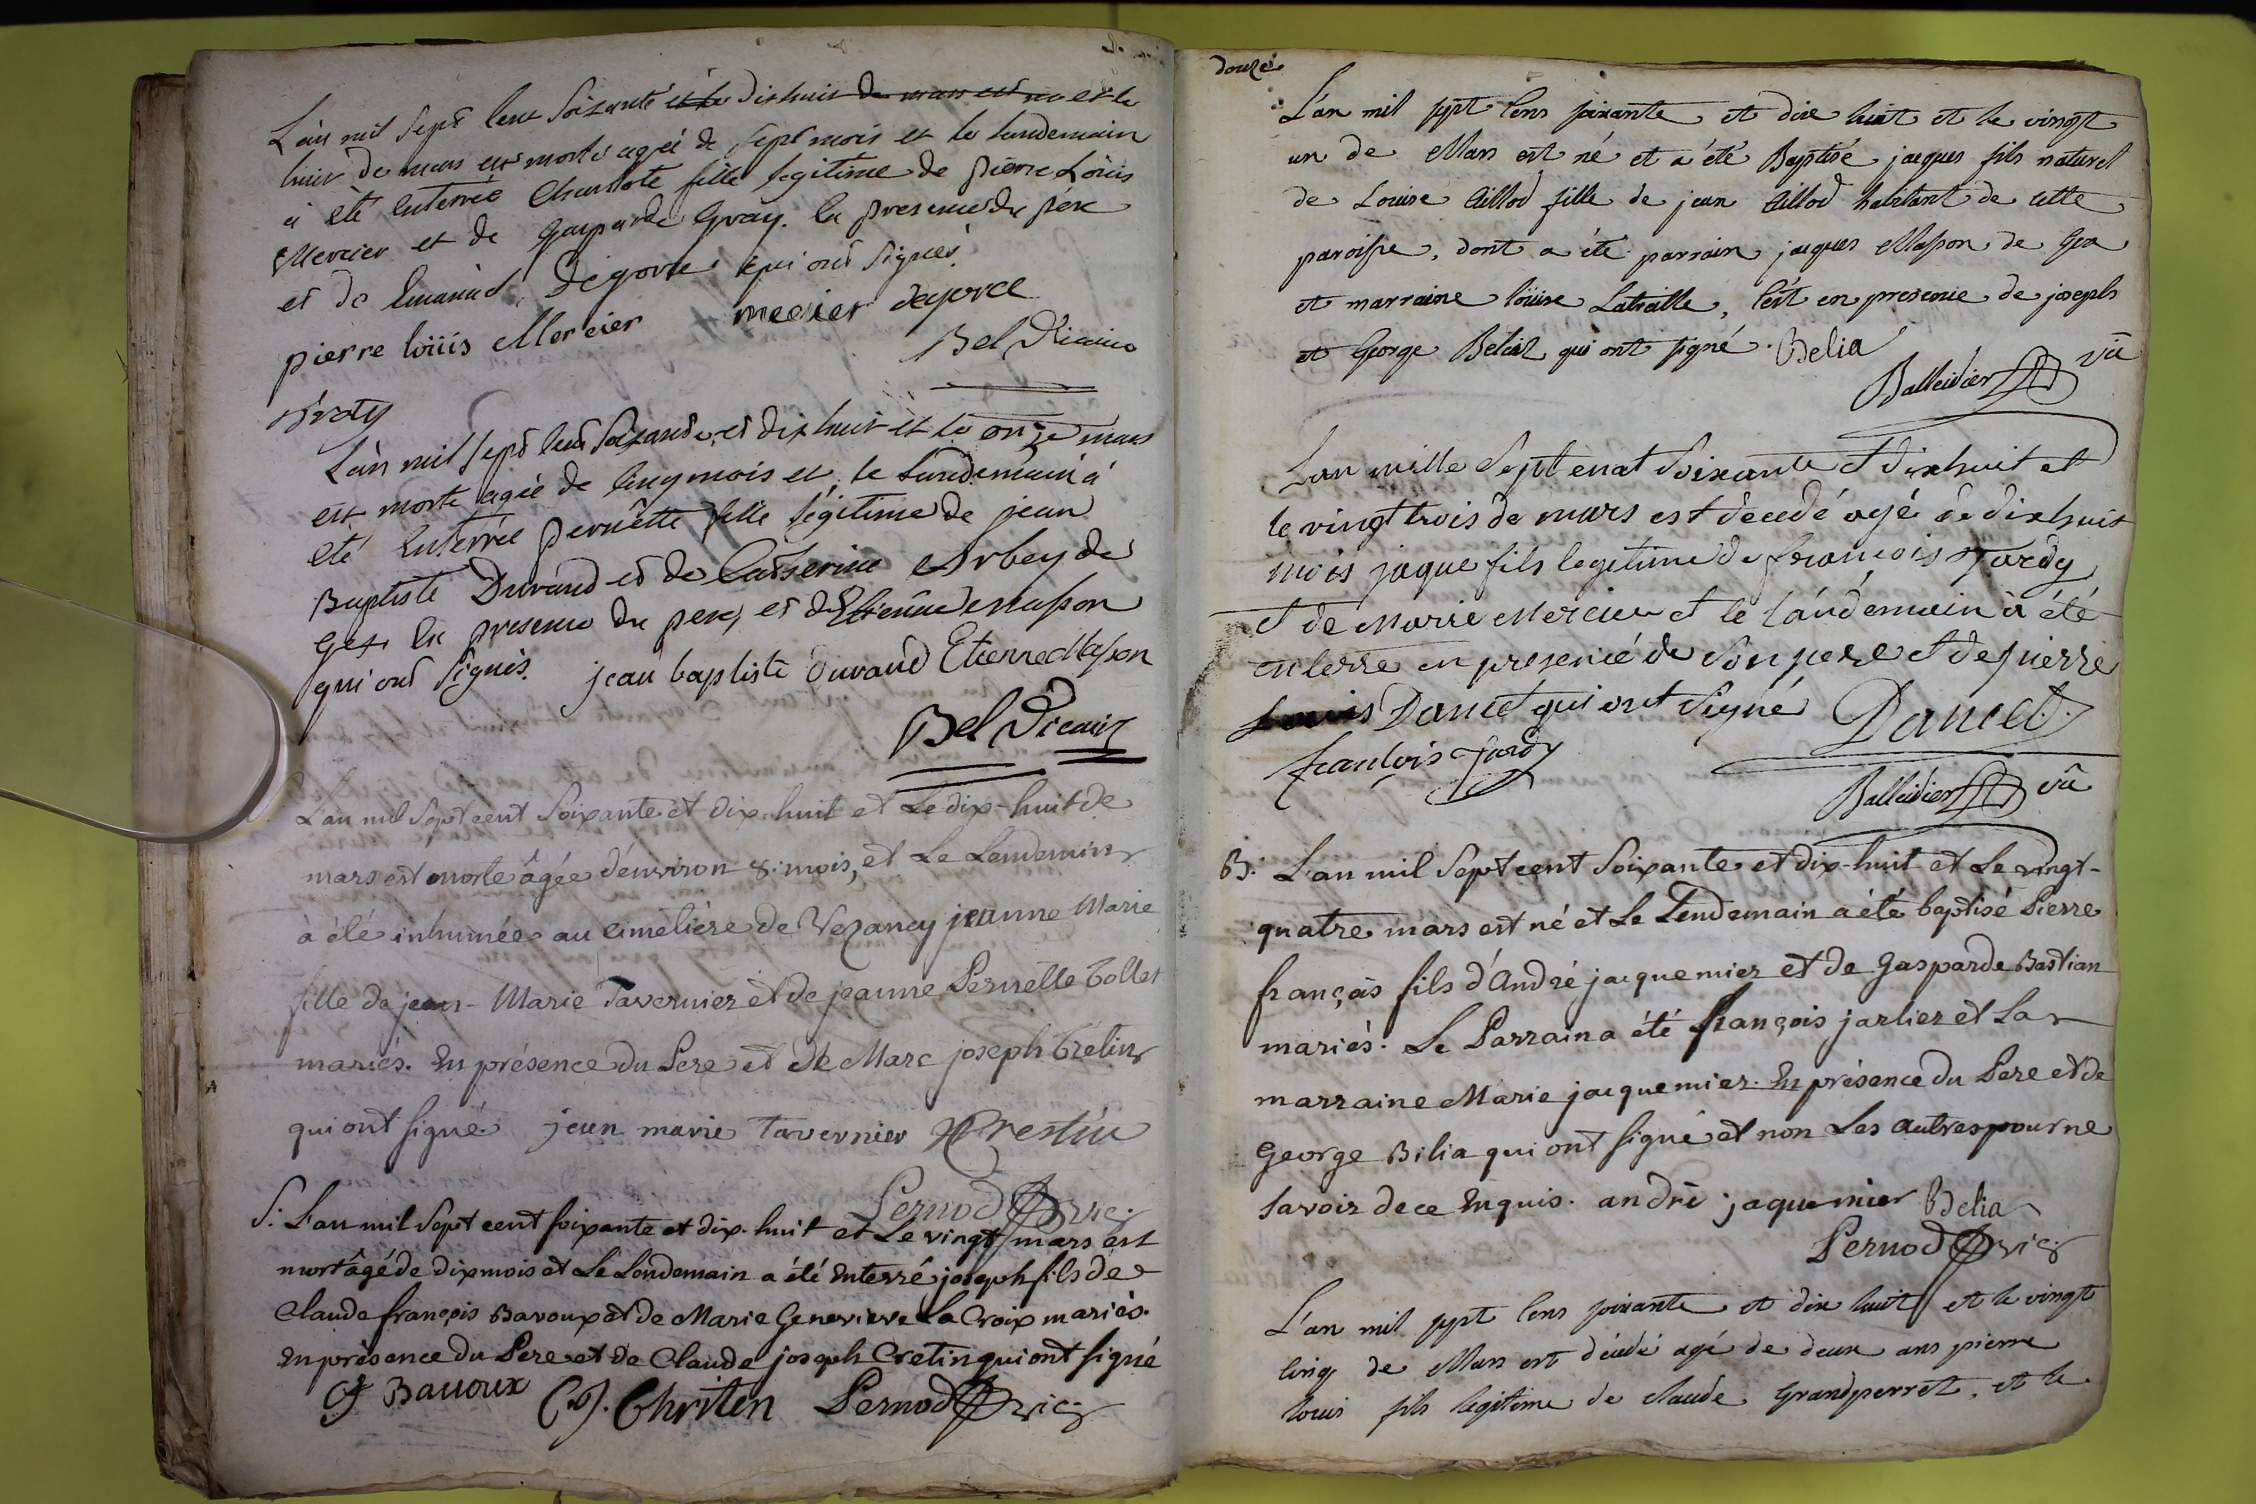 L'an mil sept cent soixante et le dixhuit de mars est mo et le
huit de mars est morte agée de sept mois et le landemain
à été enterrée Charlote fille legitime de pierre Loüis
Mercier et de Gasparde Gray. en presence du pére
et de Emanüel Degorce qui ont signés.
pierre loüis Mercier mecier degorce
Bel Vicaire
L'an mil sept cent soixante et dix huit et le onze mars
est morte agée de cinq mois et le landemain à
été enterrée pernette fille légitime de jean
Baptiste Durand et de Catherine Arbey de
Gex en presence du pere, et d'Etienne Masson
qui ont signés. jean baptiste durand Etienne Masson
Bel Vicaire
L'an mil sept cent soixante et dix-huit et Le dix-huit de
mars est morte âgée d'environ 8. mois, et Le Lendemain
à été inhumée au cimetière de Vezancy jeanne Marie
fille de jean-Marie Tavernier et de jeanne Pernette Tollet
mariés. En présence du Pere et de Marc joseph Cretin
qui ont signé jean marie tavernier Crestin
Pernod vic:
S: L'an mil sept cent soixante et dix-huit et Le vingt mars est
mort âgé de dix mois et Le Lendemain a été enterré joseph fils de
Claude françois Bavoux et de Marie Genevieve La Croix mariés.
En présence du Pere et de Claude joseph Cretin qui ont signé
Cf Bauoux C.J. Chriten Pernod vic:
douze
L'an mil sept cens soixante et dix huit et le vingt
un de Mars est né et a été Baptisé jacques fils naturel
de Louise Aillod fille de jean Aillod habitant de cette
paroisse, dont a été parrain jacques Masson de Gex
et marraine loüise Latraille, C'est en presence de joseph
et George Beliaz qui ont signé. Belia
Balleidier vic
Lan mille Sept cenat Soixante et dixhuit et
le vingt trois de mars est décedé agé de dixhuit
mois jaque fils legitime de francois Tardy
et de Marie Mercier et le landemain à été
enterré en presence de Son pere et de pierre
Louis Dancet qui ont Signé Dancet.
francois Tardy
Balleidier vic
B: L'an mil Sept cent Soixante et dix-huit et Le vingt-
quatre mars est né et Le Lendemain a été baptisé Pierre
françois fils d'André jacquemier et de Gasparde Bastian
mariés. Le Parrain a été françois jarlier et La
marraine Marie jacquemier. En présence du Pere et de
George Bilia qui ont signé et non Les autres pour ne
savoir de ce Enquis. andré jaquemier Belia
Pernod vic:
L'an mil sept cens soixante et dix huit et le vingt
cinq de Mars est décedé agé de deux ans pierre
louis fils légitime de claude Grandperret, et le